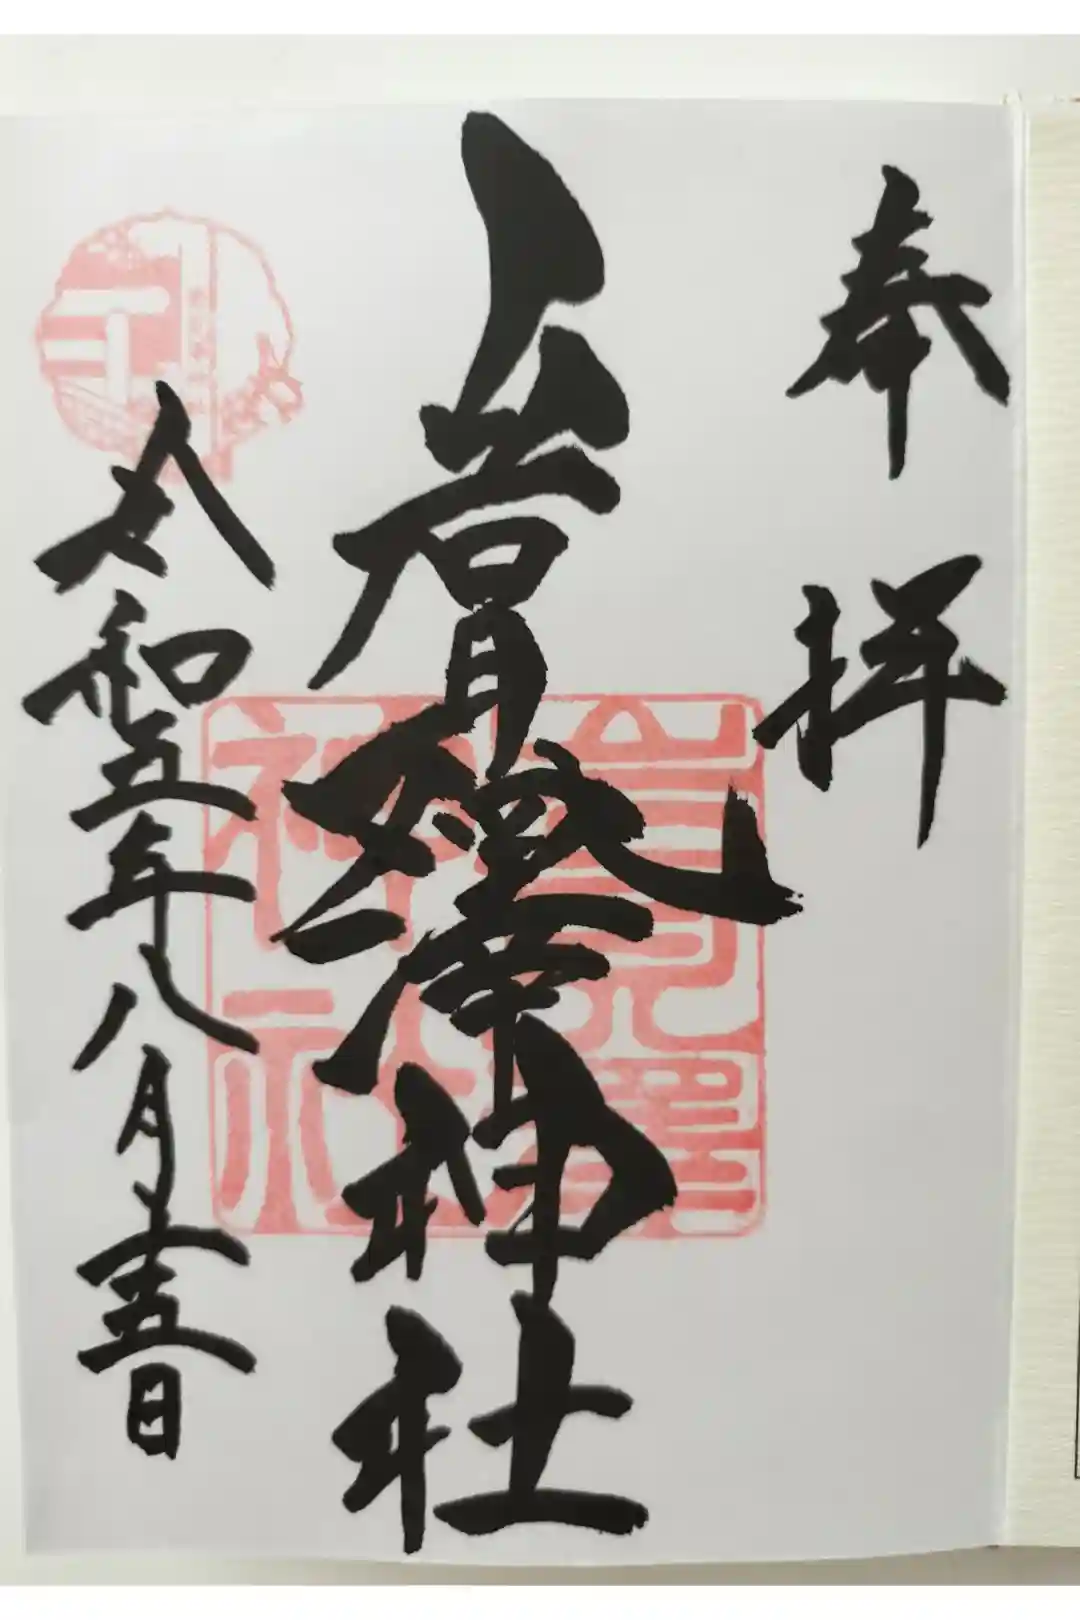 奉拝
岩見澤神社
岩見澤
神社
令和五年八月十五日